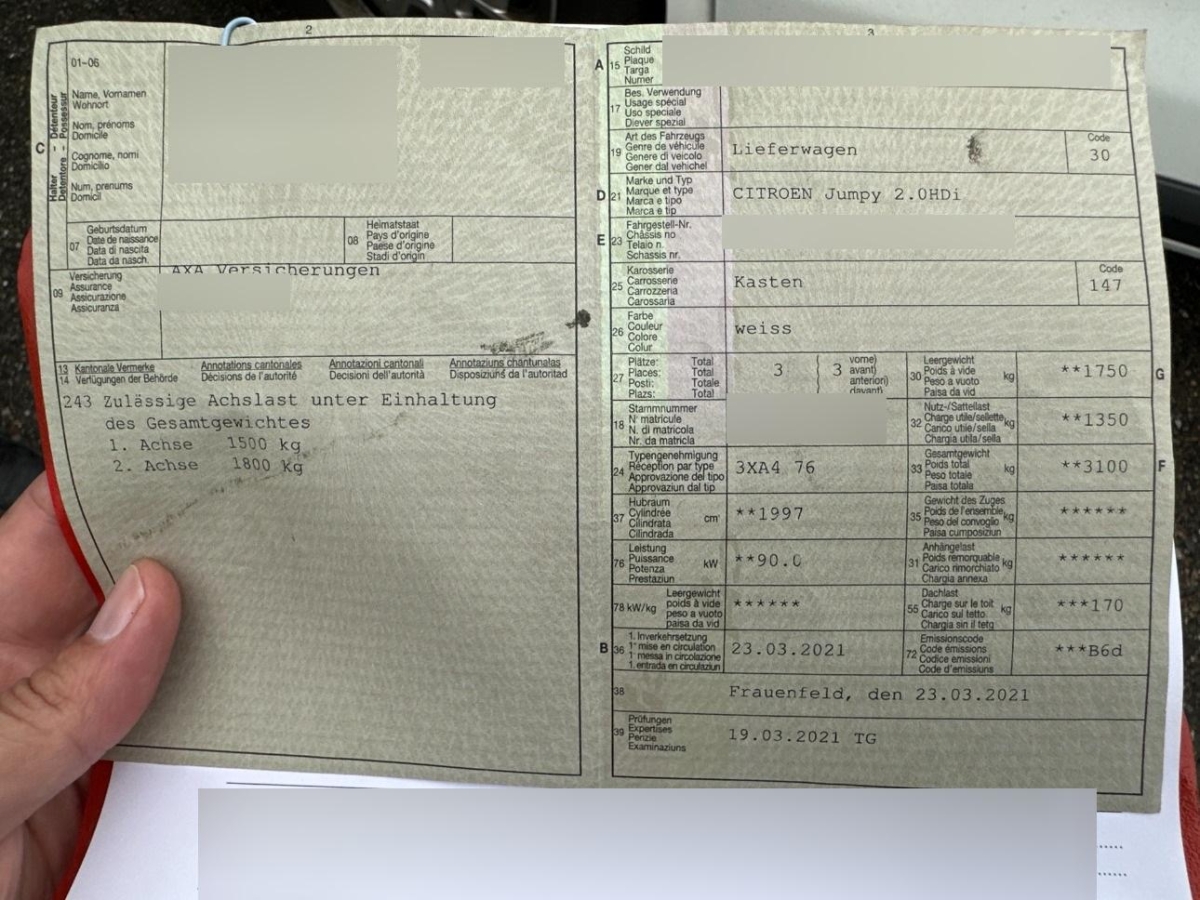 2
01-06
Name, Vornamen
Wohnort
Nom, prénoms
Domicile
Cognome, nomi
Domicilio
Num, prenums
Domicil
C
Halter - Détenteur
Detentore - Possessur
07
Geburtsdatum
Date de naissance
Data di nascita
Data da nasch.
08
Heimatstaat
Pays d'origine
Paese d'origine
Stadi d'origin
09
Versicherung
Assurance
Assicurazione
Assicuranza
AXA Versicherungen
13 Kantonale Vermerke
14 Verfügungen der Behörde
Annotations cantonales
Décisions de l'autorité
Annotazioni cantonali
Decisioni dell'autorità
Annotaziuns chantunalas
Disposiziuns da l'autoritad
243 Zulässige Achslast unter Einhaltung
des Gesamtgewichtes
1. Achse 1500 kg
2. Achse 1800 kg
3
A
15
Schild
Plaque
Targa
Numer
17
Bes. Verwendung
Usage spécial
Uso speciale
Diever spezial
19
Art des Fahrzeugs
Genre de véhicule
Genere di veicolo
Gener dal vehichel
Lieferwagen
Code
30
D
21
Marke und Typ
Marque et type
Marca e tipo
Marca e tip
CITROEN Jumpy 2.0HDi
E
23
Fahrgestell-Nr.
Châssis no
Telaio n.
Schassis nr.
25
Karosserie
Carrosserie
Carrozzeria
Carossaria
Kasten
Code
147
26
Farbe
Couleur
Colore
Colur
weiss
27
Plätze: Total
Places: Total
Posti: Totale
Plazs: Total
3
3
vorne)
avant)
anteriori)
davant)
30
Leergewicht
Poids à vide
Peso a vuoto
Paisa da vid
kg
**1750
G
18
Stammnummer
N° matricule
N. di matricola
Nr. da matricla
32
Nutz-/Sattellast
Charge utile/sellette
Carico utile/sella
Chargia utila/sella
kg
**1350
24
Typengenehmigung
Réception par type
Approvazione del tipo
Approvaziun dal tip
3XA4 76
33
Gesamtgewicht
Poids total
Peso totale
Paisa totala
kg
**3100
F
37
Hubraum
Cylindrée
Cilindrata
Cilindrada
cm³
**1997
35
Gewicht des Zuges
Poids de l'ensemble
Peso del convoglio
Paisa cumposiziun
kg
******
76
Leistung
Puissance
Potenza
Prestaziun
kW
**90.0
31
Anhängelast
Poids remorquable
Carico rimorchiato
Chargia annexa
kg
******
78 kW/kg
Leergewicht
poids à vide
peso a vuoto
paisa da vid
******
55
Dachlast
Charge sur le toit
Carico sul tetto
Chargia sin il tetg
kg
***170
B
36
1. Inverkehrsetzung
1re mise en circulation
1a messa in circolazione
1. entrada en circulaziun
23.03.2021
72
Emissionscode
Code émissions
Codice emissioni
Code d'emissiuns
***B6d
38
Frauenfeld, den 23.03.2021
39
Prüfungen
Expertises
Perizie
Examinaziuns
19.03.2021 TG